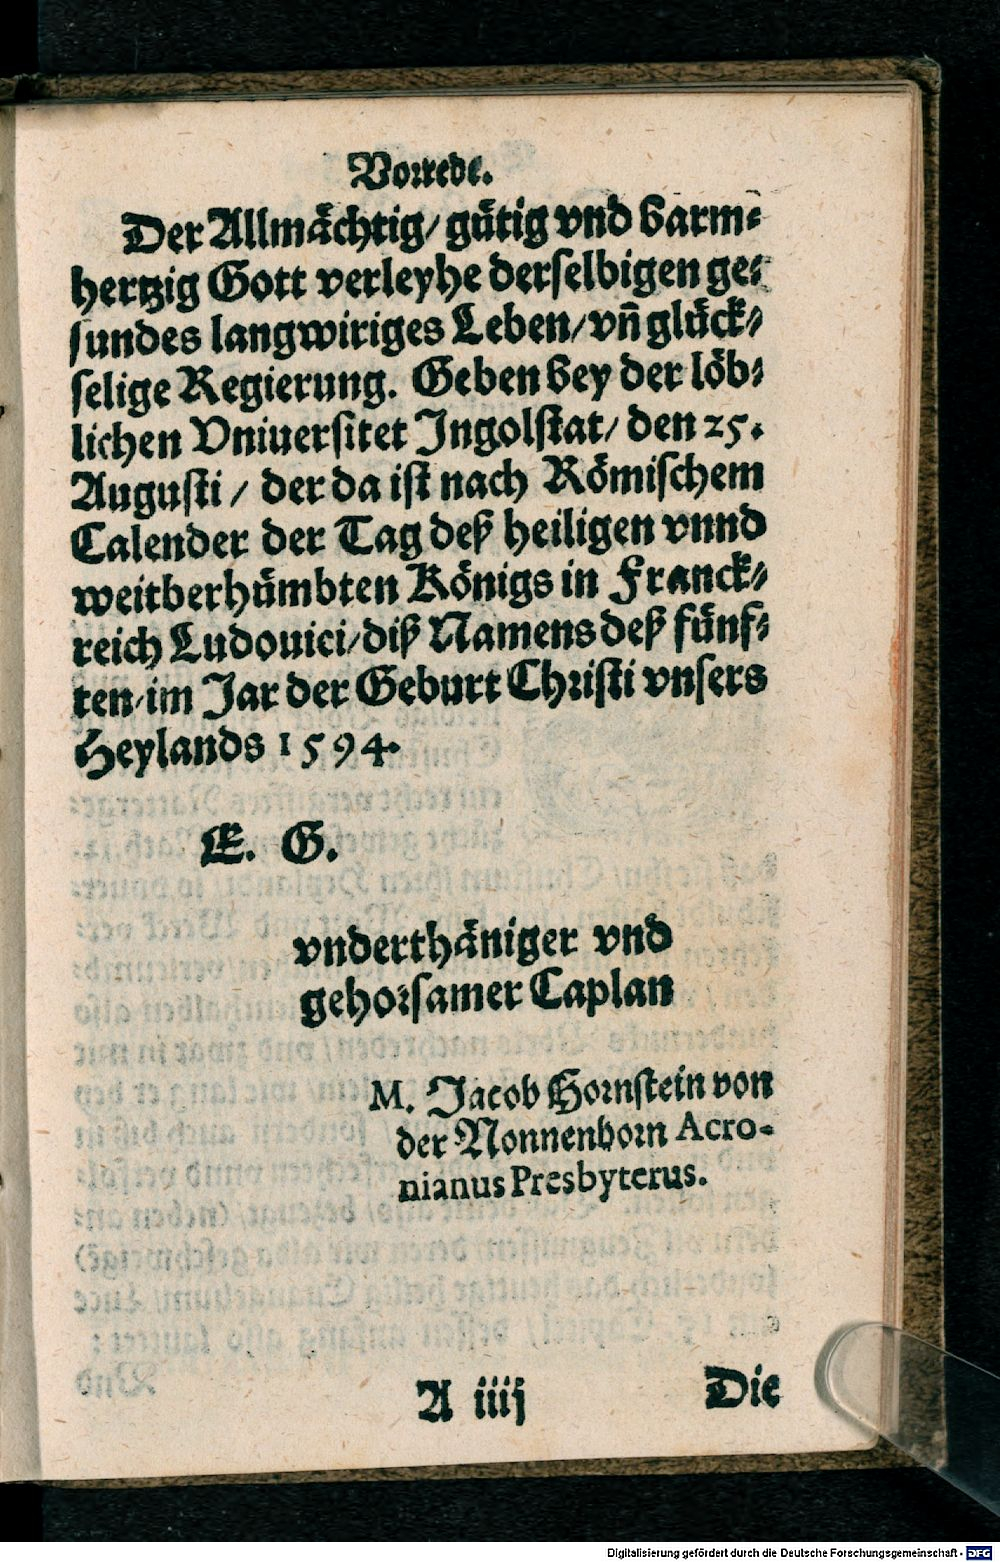 Vorrede.
Der Allmächtig/ gütig vnd barm⸗
hertzig Gott verleyhe derselbigen ge⸗
sundes langwiriges Leben/ vñ glück⸗
selige Regierung. Geben bey der löb⸗
lichen Vniuersitet Jngolstat/ den 25.
Augusti / der da ist nach Römischem
Calender der Tag deß heiligen vnnd
weitberhümbten Königs in Franck⸗
reich Ludouici/ diß Namens deß fünf⸗
ten/ im Jar der Geburt Christi vnsers
Heylands 1594.
E. G.
vnderthäniger vnd
gehorsamer Caplan
M. Jacob Hornstein von
der Nonnenhorn Acro-
nianus Presbyterus.
A iiij
Die
Digitalisierung gefördert durch die Deutsche Forschungsgemeinschaft - DFG